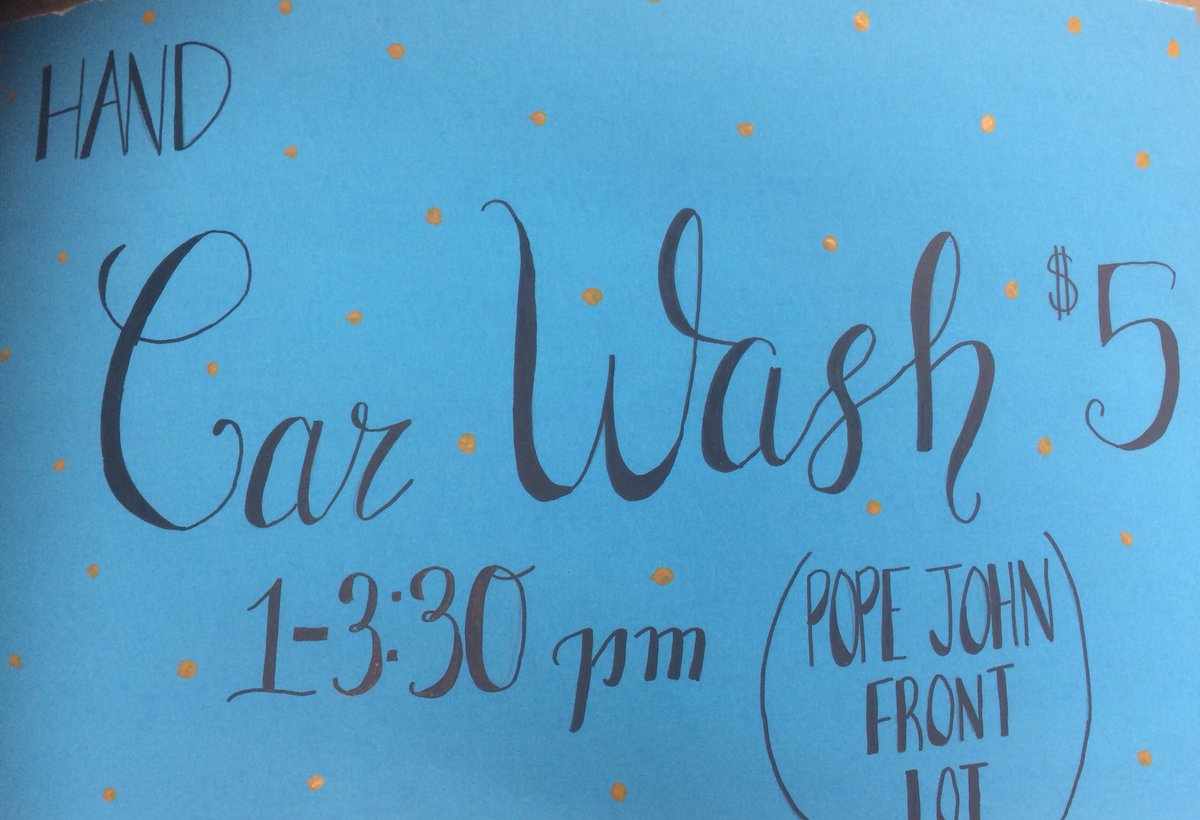 HAND
Car Wash $5
1-3:30 pm
(POPE JOHN
FRONT
LOT